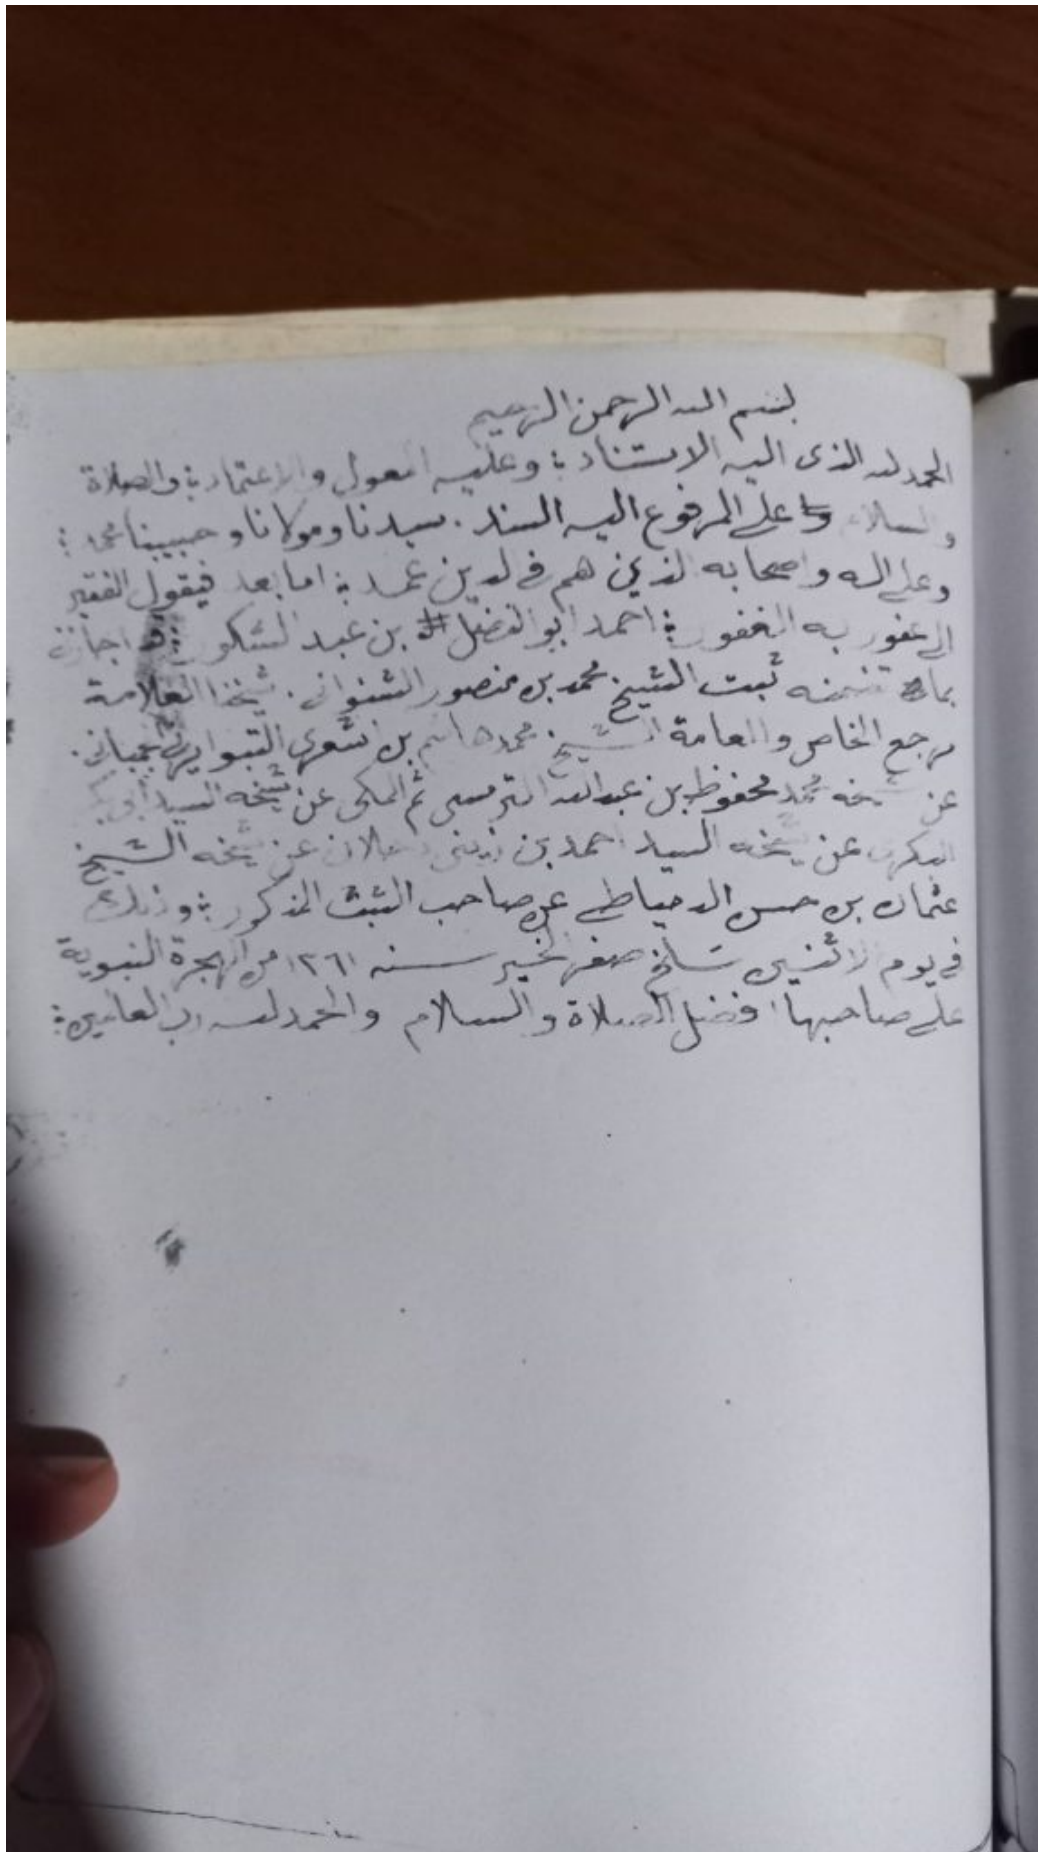 بسم الله الرحمن الرحيم
الحمد لله الذى اليه الاستناد ؛ وعليه المعول والاعتماد ؛ والصلاة
والسلام على المرفوع اليه السند . سيدنا ومولانا وحبيبنا محمد ؛
وعلى اله واصحابه الذين هم فى لدين عمد ؛ اما بعد فيقول الفقير
الى عفو ربه الغفور ؛ احمد ابو الفضل بن عبد الشكور ؛ اجازنى
بما تضمنه ثبت الشيخ محمد بن منصور الشنوانى . شيخنا العلامة
مرجع الخاص والعامة الشيخ محمد هاشم بن اشعرى التبوايرنج
عن شيخه محمد محفوظ بن عبد الله الترمسى ثم المكى عن شيخه السيد ابى بكر
البكرى عن شيخه السيد احمد بن زينى دحلان عن شيخه الشيخ
عثمان بن حسن الدمياطى عن صاحب الثبت المذكور ؛ وذلك
فى يوم الاثنين سلخ صفر الخير سنه ١٣٦١ من الهجرة النبوية
على صاحبها افضل الصلاة والسلام والحمد لله رب العالمين ؛